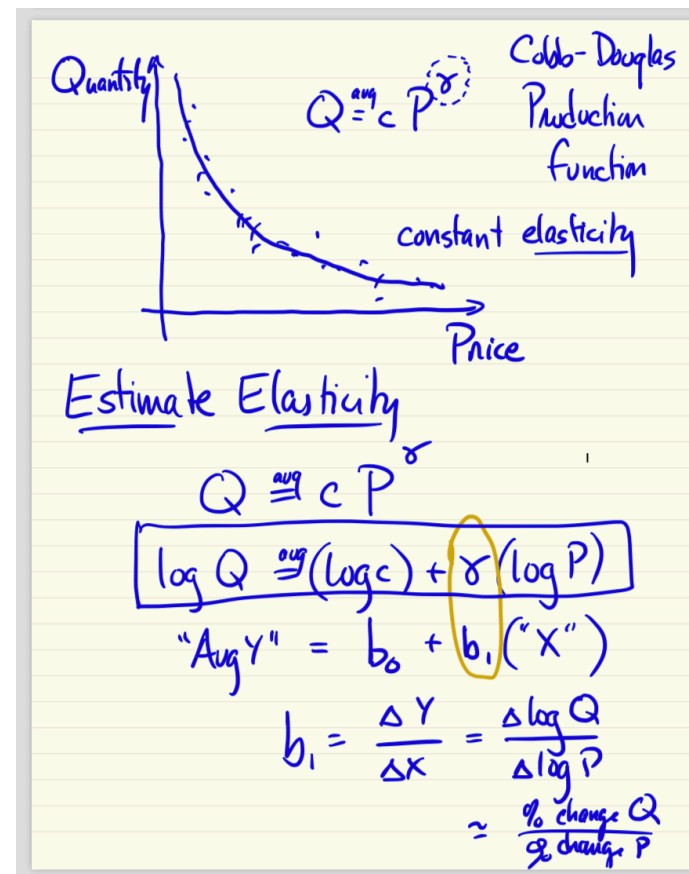 Quantity
Q =avg c P^γ
Cobb-Douglas
Production
function
constant elasticity
Price
Estimate Elasticity
Q =avg c P^γ
log Q =avg (log c) + γ (log P)
"Avg Y" = b₀ + b₁ ("X")
b₁ = ΔY/ΔX = Δ log Q/Δ log P
≈ % change Q/% change P